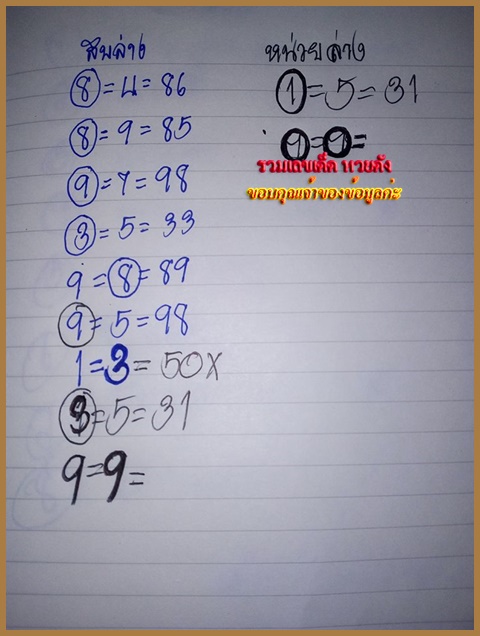 สิบล่าง
8=4=86
8=9=85
9=7=98
3=5=33
9=8=89
9=5=98
1=3=50X
=5=31
9=9=
หน่วยล่าง
1=5=31
9=9=
รวมเลขเด็ด หวยดัง
ขอบคุณเจ้าของข้อมูลค่ะ